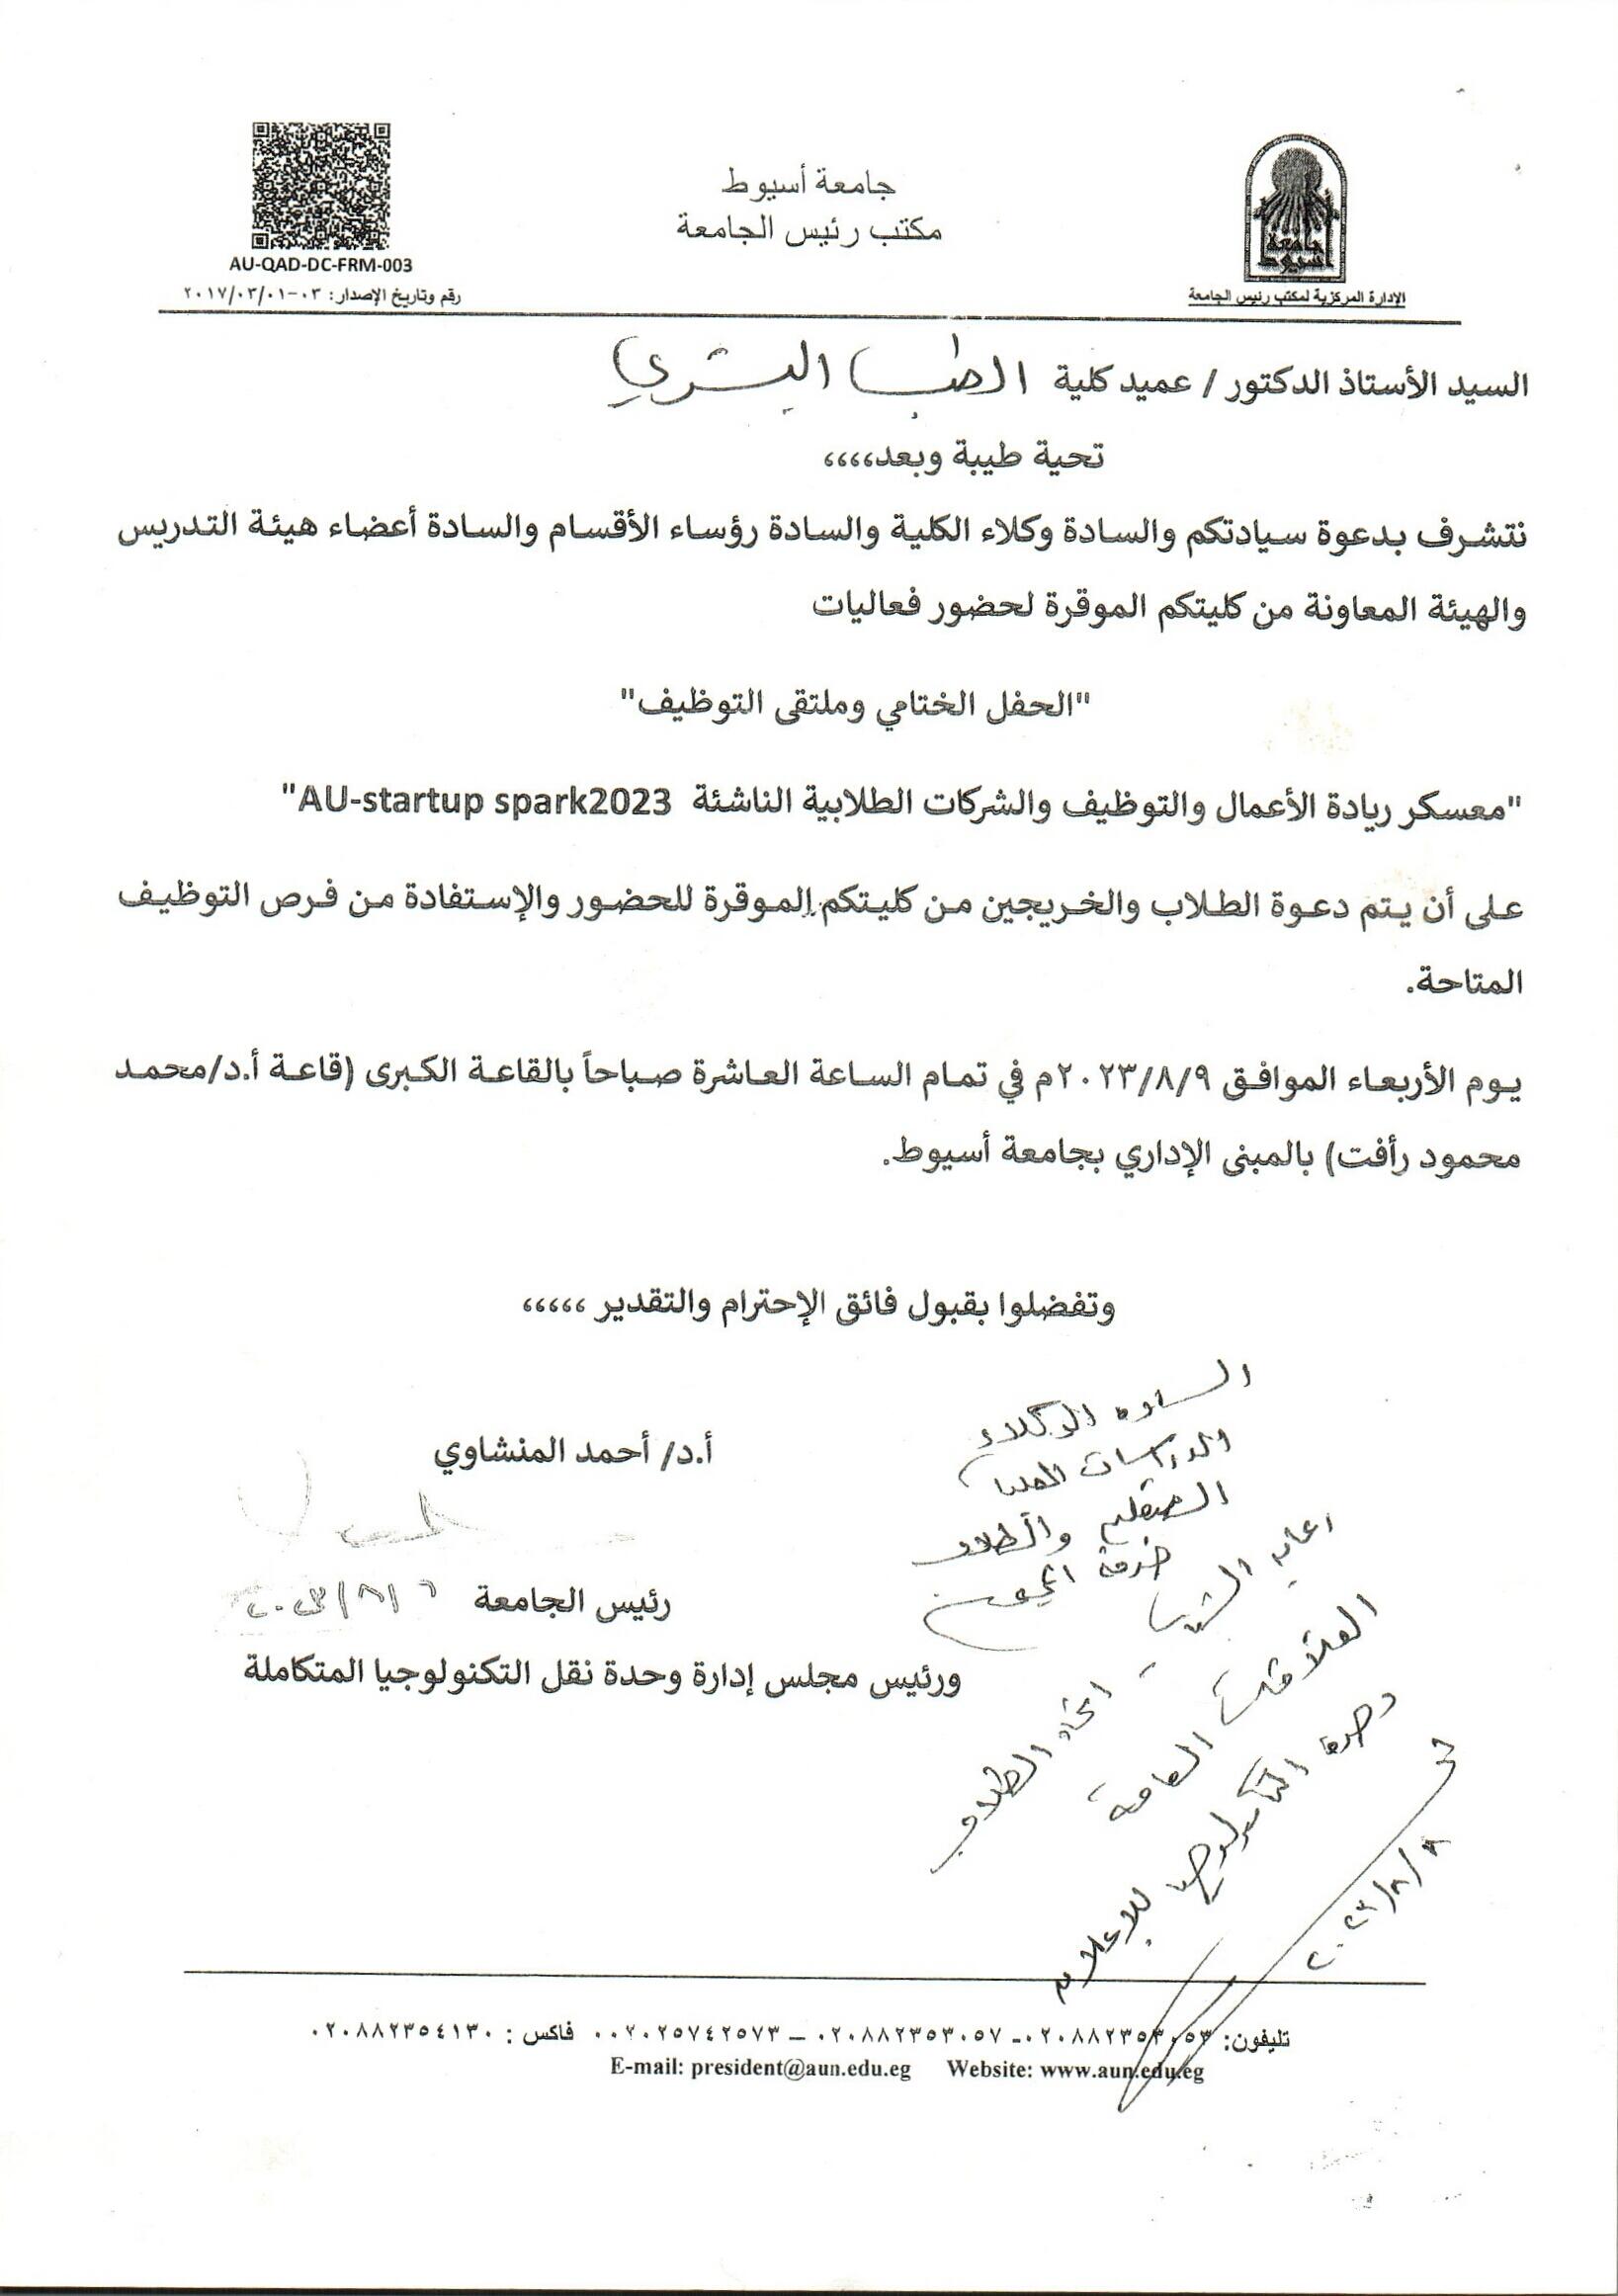 جامعة أسيوط
مكتب رئيس الجامعة
جامعة
أسيوط
الإدارة المركزية لمكتب رئيس الجامعة
AU-QAD-DC-FRM-003
رقم وتاريخ الإصدار: ٠٣-٢٠١٧/٠٣/٠١
السيد الأستاذ الدكتور / عميد كلية الطب البشري
تحية طيبة وبعد،،،،
نتشرف بدعوة سيادتكم والسادة وكلاء الكلية والسادة رؤساء الأقسام والسادة أعضاء هيئة التدريس
والهيئة المعاونة من كليتكم الموقرة لحضور فعاليات
"الحفل الختامي وملتقى التوظيف"
"معسكر ريادة الأعمال والتوظيف والشركات الطلابية الناشئة AU-startup spark2023"
على أن يتم دعوة الطلاب والخريجين من كليتكم الموقرة للحضور والإستفادة من فرص التوظيف
المتاحة.
يوم الأربعاء الموافق ٢٠٢٣/٨/٩م في تمام الساعة العاشرة صباحاً بالقاعة الكبرى (قاعة أ.د/محمد
محمود رأفت) بالمبنى الإداري بجامعة أسيوط.
وتفضلوا بقبول فائق الإحترام والتقدير ،،،،،
أ.د/ أحمد المنشاوي
رئيس الجامعة
ورئيس مجلس إدارة وحدة نقل التكنولوجيا المتكاملة
الساده الوكلاء
الدراسات العليا
التعليم والطلاب
خدمة المجتمع
رعاية الشباب
اتحاد الطلاب
العلاقات العامة
وحدة التكنولوجيا للإعلام
٢٠٢٣/٨/٨
تليفون: ٠٢٠٨٨٢٣٥٣٠٥٣- ٠٢٠٨٨٢٣٥٣٠٥٧ – ٠٠٢٠٢٥٧٤٢٥٧٣ فاكس : ٠٢٠٨٨٢٣٥٤١٣٠
E-mail: president@aun.edu.eg Website: www.aun.edu.eg